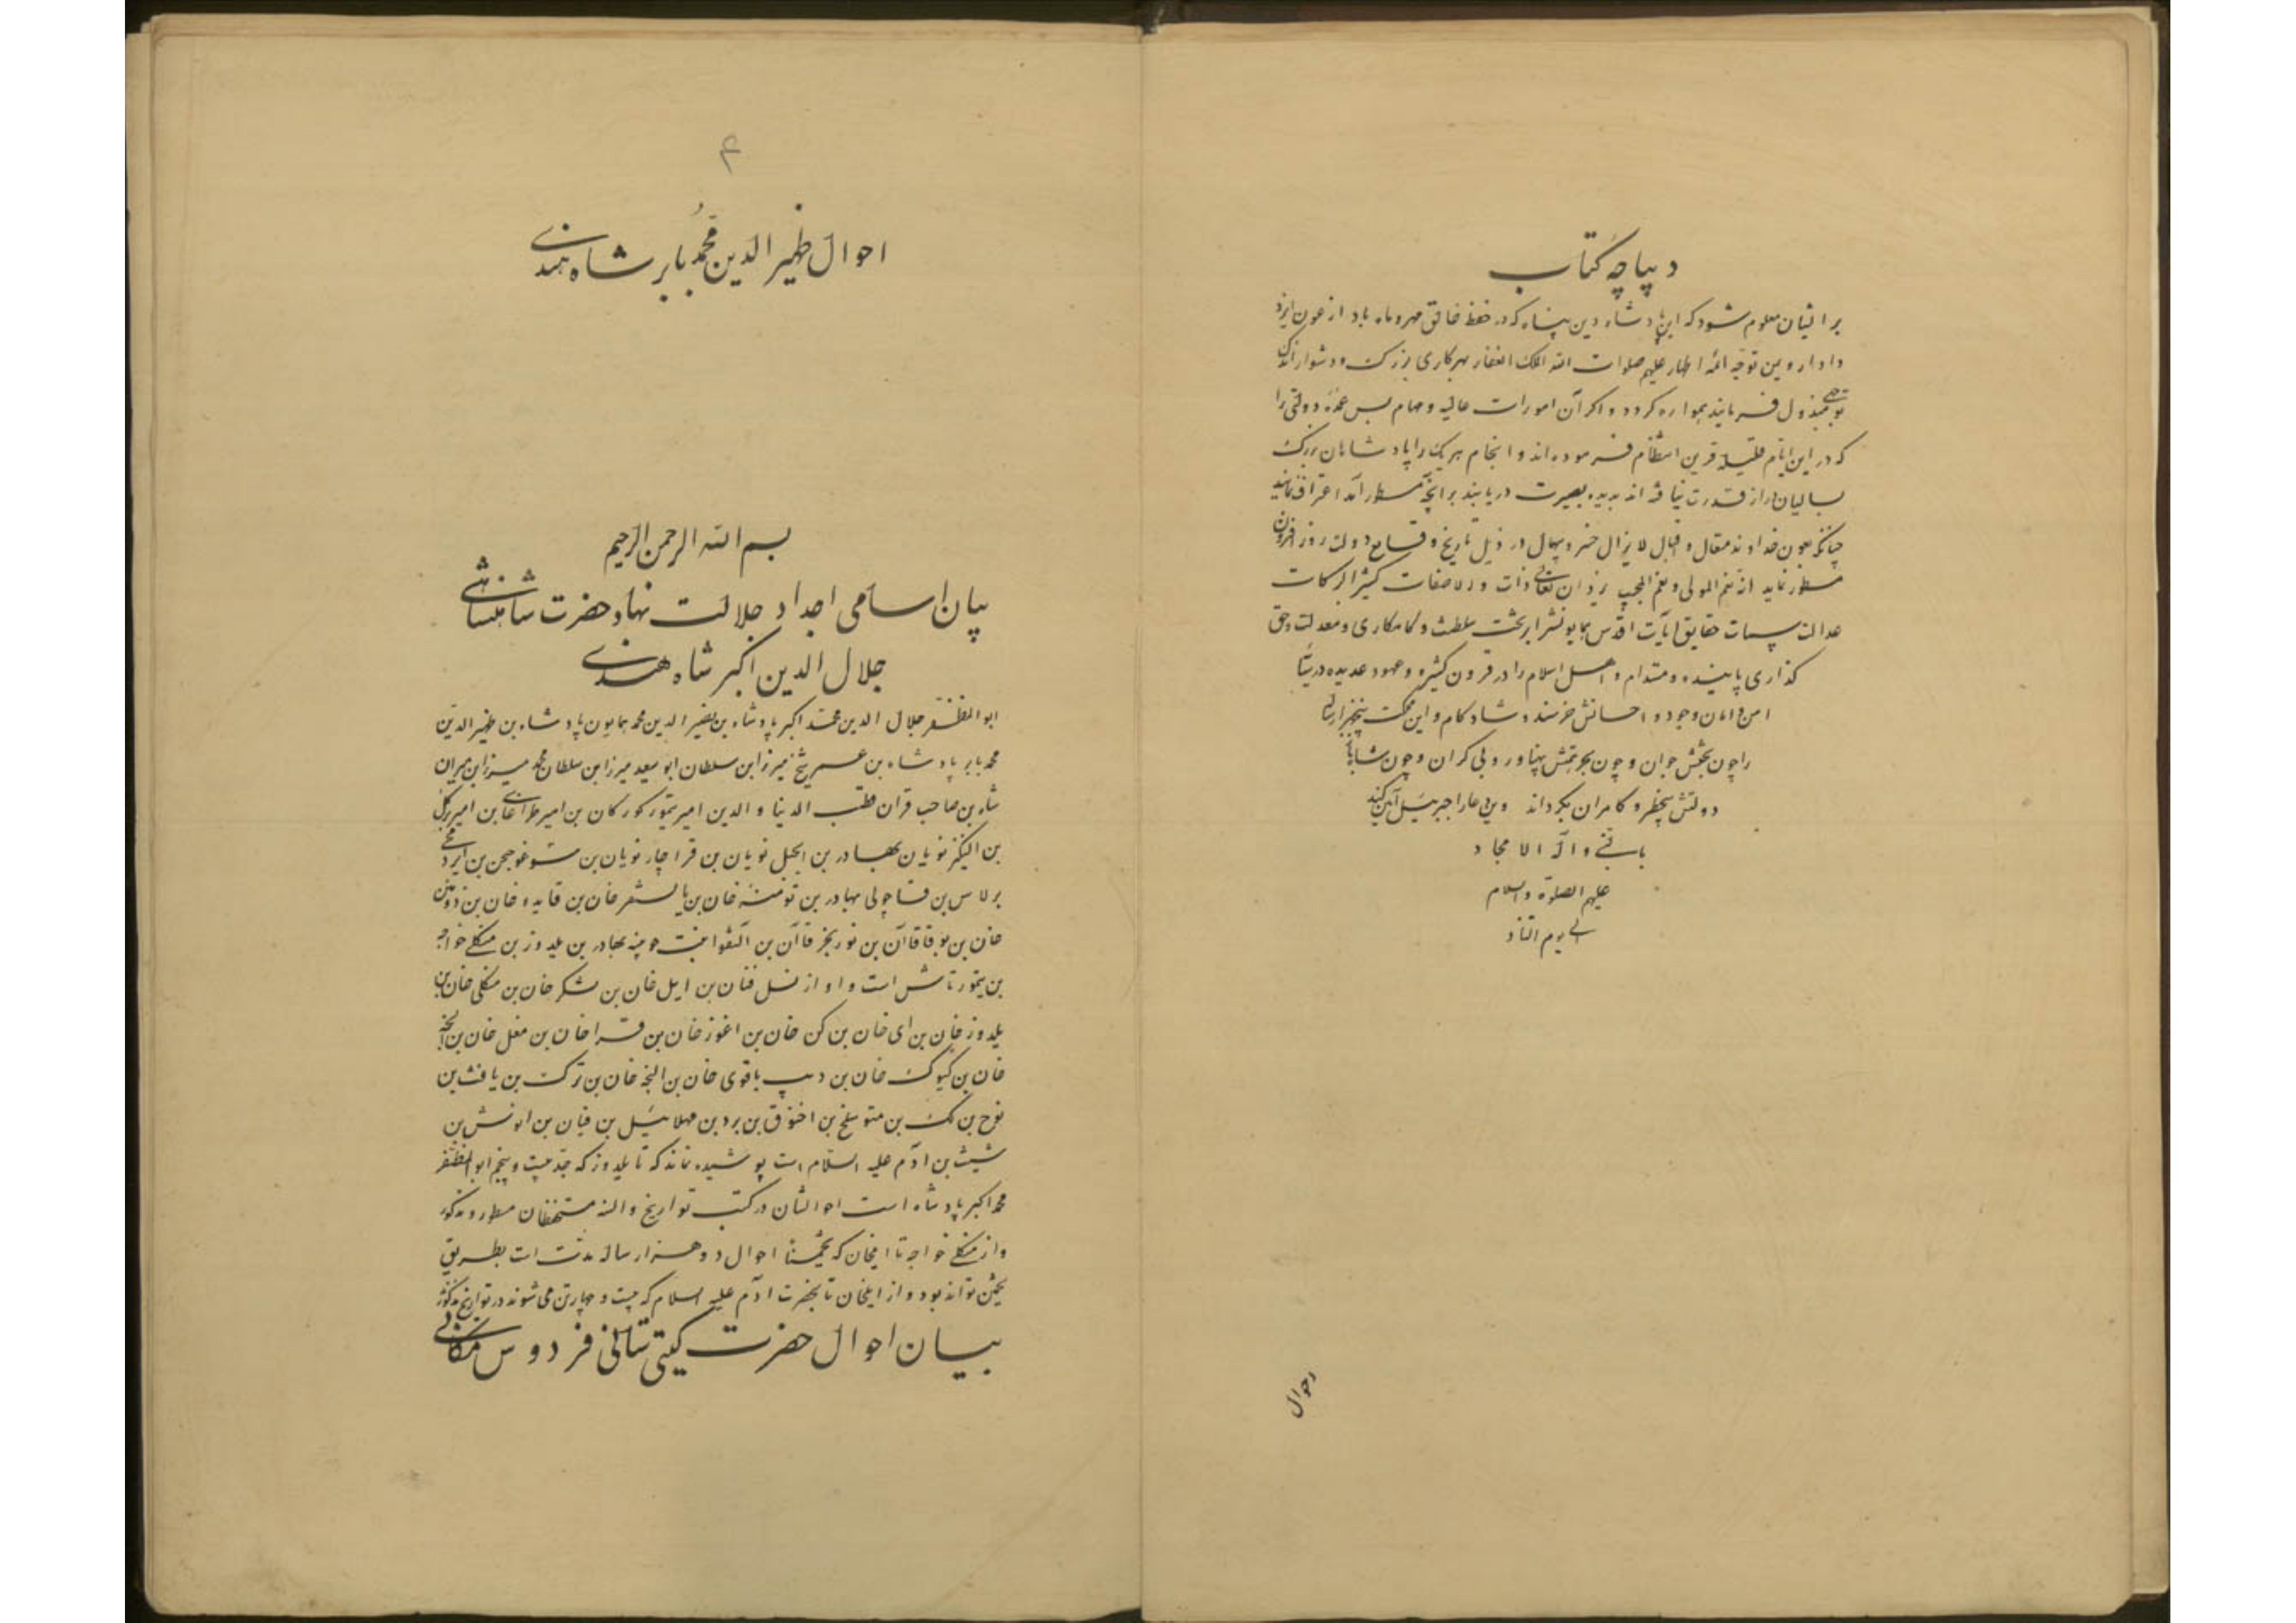 دیباچه کتاب
بر ایشان معلوم شود که این پادشاه دین پناه که در حفظ خالق مهر و ماه باد از عون ایزد
دادار و یمن توجه ائمه اطهار علیهم صلوات الله الملک الغفار بهر کاری بزرگ و دشوار اندک
توجهی مبذول فرمایند هموار گردد و اگر آن امورات عالیه و مهام بس عمده دولتی را
که در این ایام قلیله قرین انتظام فرموده‌اند و انجام هر یک را پادشاهان بزرگ
بسالیان دراز قدرت نیافته‌اند بدیده بصیرت دریابند بر آنچه مسطور آمد اعتراف نمایند
چنانکه بعون خداوند متعال و اقبال لایزال خسرو بیهمال در ذیل تاریخ وقایع دولت روز افزون
مسطور نماید انه نعم المولی و نعم المجیب یزدان تعالی ذات والا صفات کثیر البرکات
عدالت سمات حقایق آیات اقدس همایونش را بر تخت سلطنت و کامکاری و معدلت و حق
گذاری پاینده و مستدام و اهل اسلام را در قرون کثیره و عهود عدیده در
امن و امان وجود و احسانش خرسند و شادکام و این
را چون بختش جوان و چون همتش پهناور و بی کران و چون
دولتش بیخطر و کامران بگرداند و این دعا را جبرئیل آمین کند
بالنبی و آله الامجاد
علیهم الصلوة و السلام
الی یوم التناد
احوال
۴
احوال ظهیر الدین محمد بابر شاه هندی
بسم الله الرحمن الرحیم
بیان اسامی اجداد جلالت نهاد حضرت شاهنشاهی
جلال الدین اکبر شاه هندی
ابوالمظفر جلال الدین محمد اکبر پادشاه بن نصیر الدین محمد همایون پادشاه بن ظهیر الدین
محمد بابر پادشاه بن عمر شیخ میرزا بن سلطان ابو سعید میرزا بن سلطان محمد میرزا بن میران
شاه بن صاحب قران قطب الدنیا و الدین امیر تیمور کورکان بن امیر طراغای بن امیر برکل
بن الینکز نویان بهادر بن ایجل نویان بن قراچار نویان بن سوغوجن بن ایردمجی
برلاس بن قاچولی بهادر بن تومنه خان بن بایسنقر خان بن قایدو خان بن دوتمین
خان بن بوقا قاآن بن توزنجر قاآن بن آلنقوا بنت جوینه بهادر بن یلدوز بن منکلی خواجه
بن تیمورتاش است و او از نسل قیان بن ایل خان بن تنکز خان بن منکلی خان بن
یلدوز خان بن آی خان بن کن خان بن اغوز خان بن قرا خان بن مغل خان بن النجه
خان بن کیوک خان بن دیب باقوی خان بن النجه خان بن ترک بن یافث بن
نوح بن لمک بن متوسلخ بن اخنوق بن یرد بن مهلائیل بن قینان بن انوش بن
شیث بن آدم علیه السلام است پوشیده نماند که تا یلدوز که جد بیست و پنجم ابوالمظفر
محمد اکبر پادشاه است احوالشان در کتب تواریخ و السنه مستحفظان مسطور و مذکور
و از منکلی خواجه تا ایلخان که تخمینا احوال دو هزار ساله مدت است بطریق
تخمین تواند بود و از ایلخان تا بحضرت آدم علیه السلام که بیست و چهار تن می شوند در تواریخ مذکور
بیان احوال حضرت گیتی ستانی فردوس مکانی